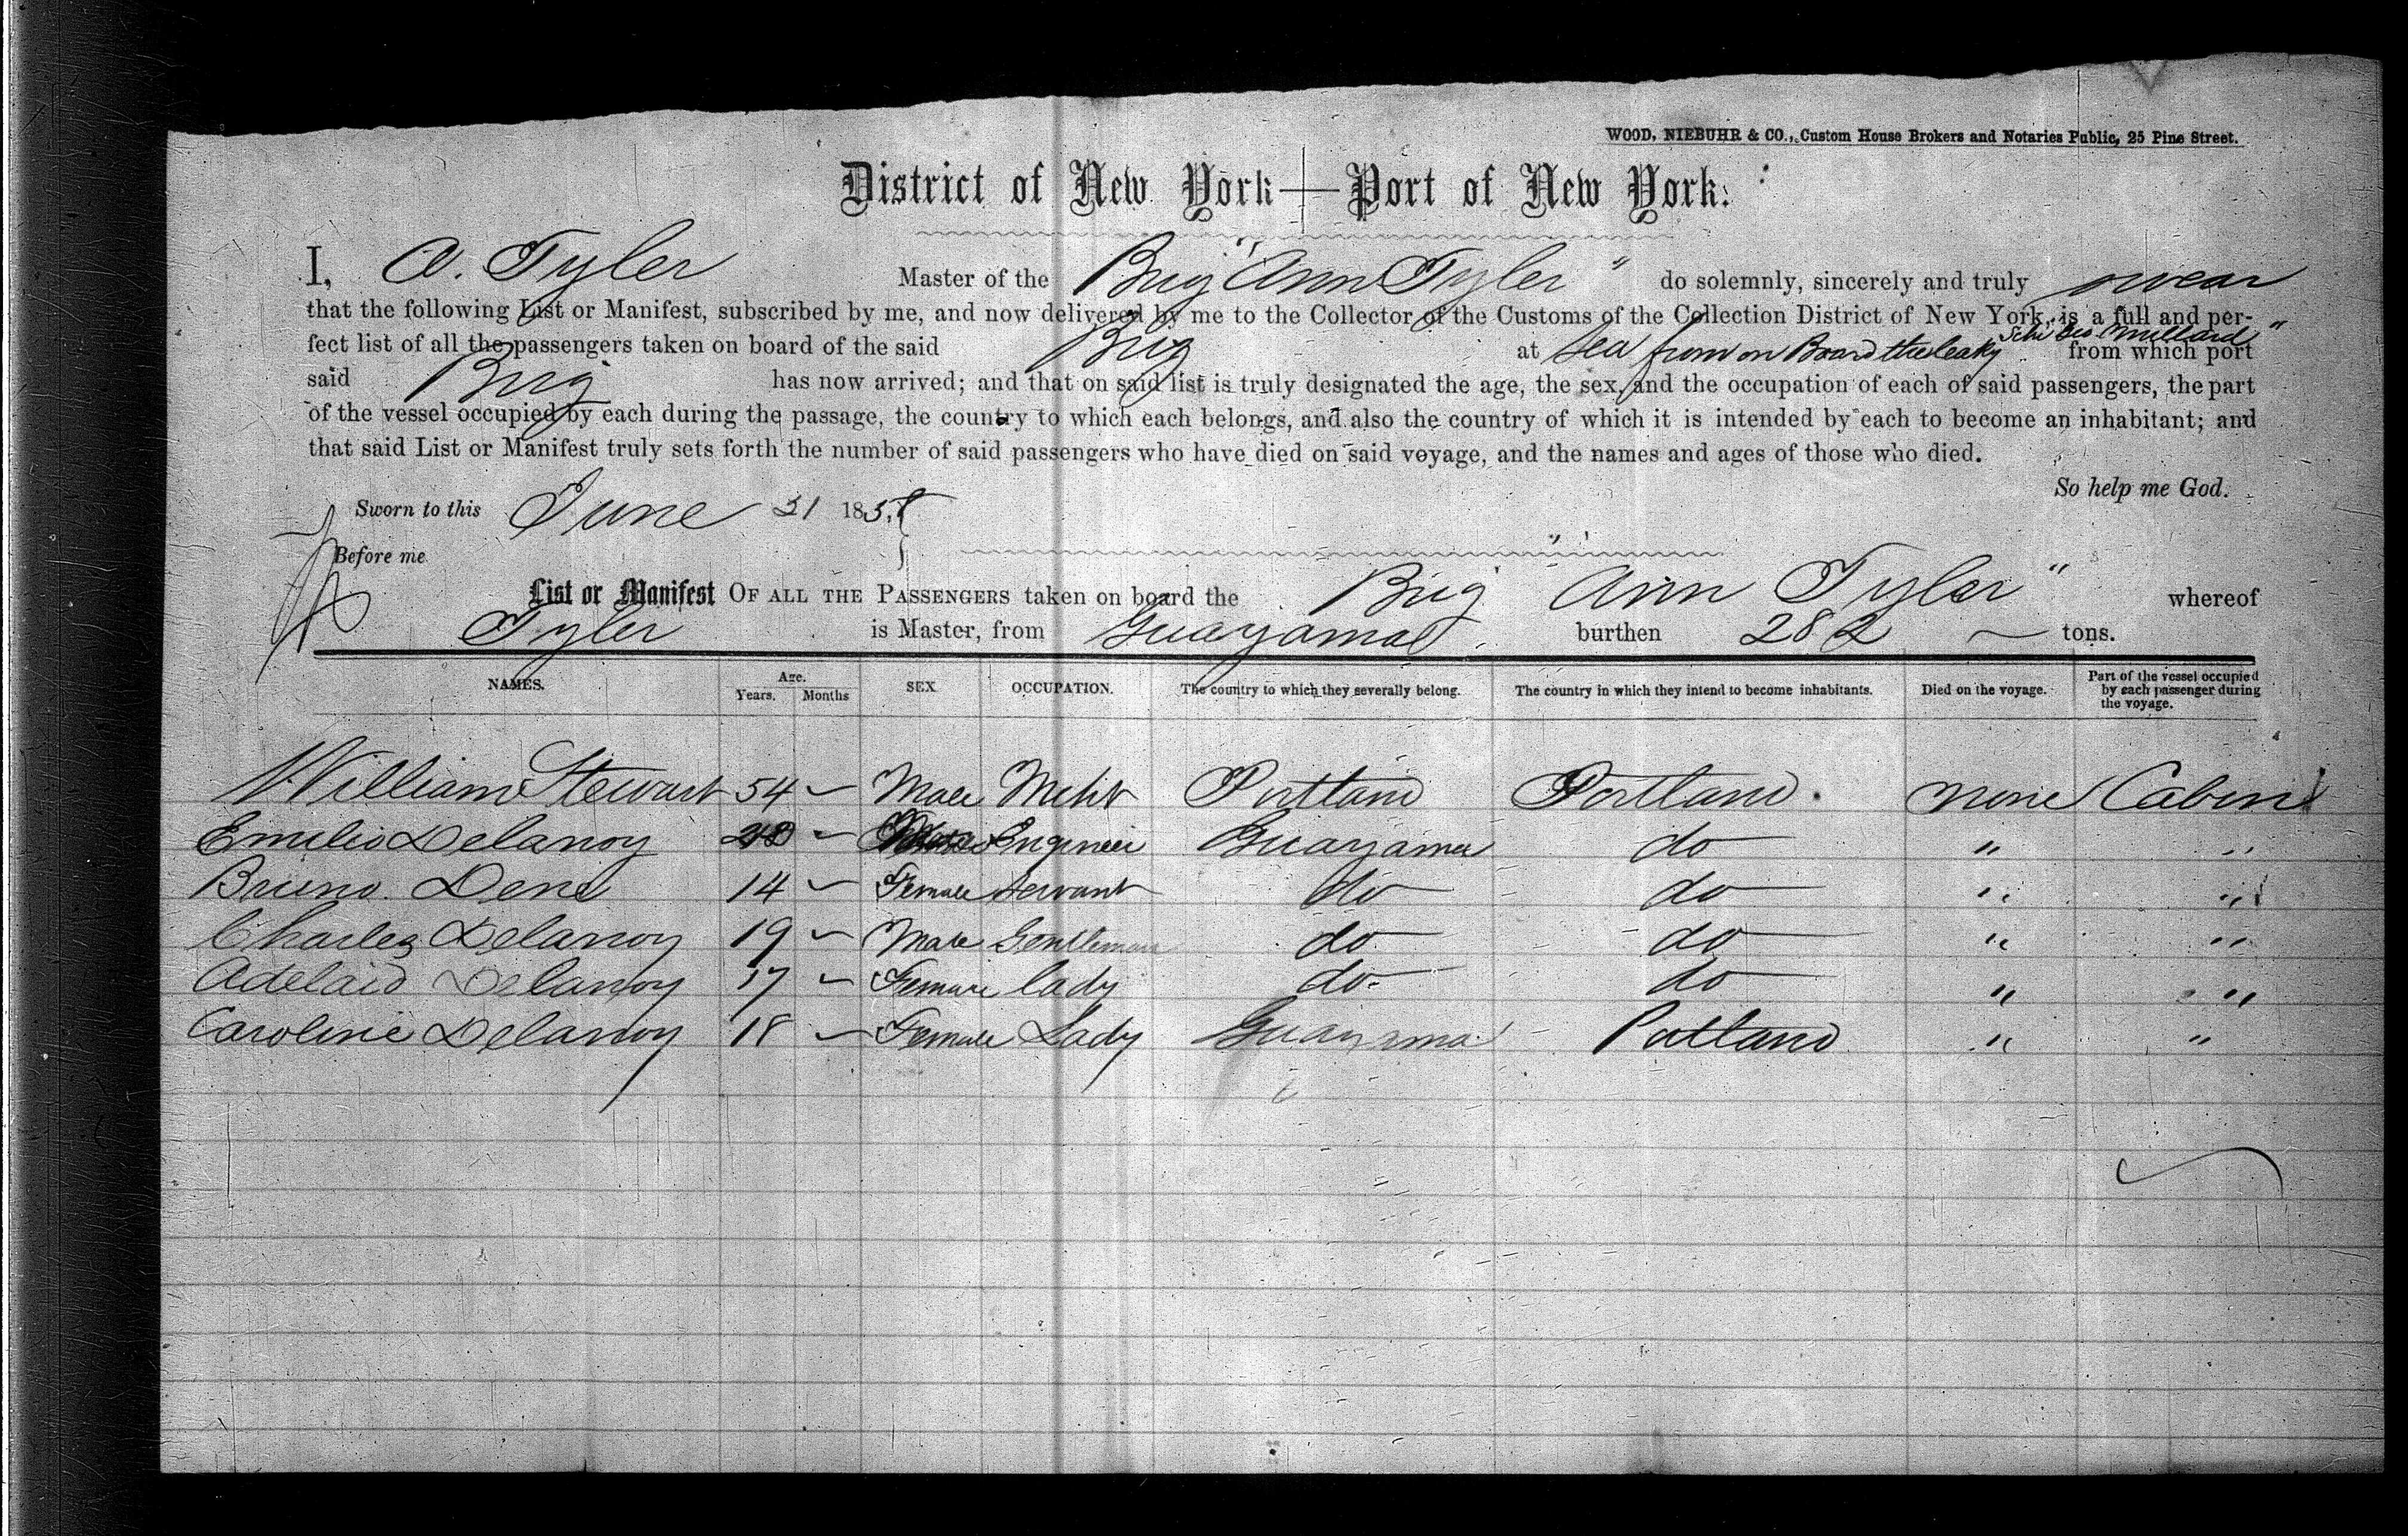 WOOD, NIEBUHR & CO., Custom House Brokers and Notaries Public, 25 Pine Street.
District of New York—Port of New York.
I, A. Tyler Master of the Brig "Ann Tyler" do solemnly, sincerely and truly swear
that the following List or Manifest, subscribed by me, and now delivered by me to the Collector of the Customs of the Collection District of New York, is a full and per-
fect list of all the passengers taken on board of the said Brig at Sea from on Board the leaky Schr Geo Millard" from which port
said Brig has now arrived; and that on said list is truly designated the age, the sex, and the occupation of each of said passengers, the part
of the vessel occupied by each during the passage, the country to which each belongs, and also the country of which it is intended by each to become an inhabitant; and
that said List or Manifest truly sets forth the number of said passengers who have died on said voyage, and the names and ages of those who died.
So help me God.
Sworn to this June 21 185
Before me
List or Manifest OF ALL THE PASSENGERS taken on board the Brig "Ann Tyler" whereof
Tyler is Master, from Guayama burthen 282 — tons.
NAMES. Age. Years. Months SEX. OCCUPATION. The country to which they severally belong. The country in which they intend to become inhabitants. Died on the voyage. Part of the vessel occupied by each passenger during the voyage.
William Stewart 54 — Male Mcht Portland Portland. none Cabin
Emilio Delanoy — Engineer Guayama do " "
Bruno. Dene 14 — Female Servant do do " "
Charles Delanoy 19 — Male Gentleman do do " "
Adelaid Delanoy 17 — Female lady do do " "
Caroline Delanoy 18 — Female Lady Guayama Portland " "